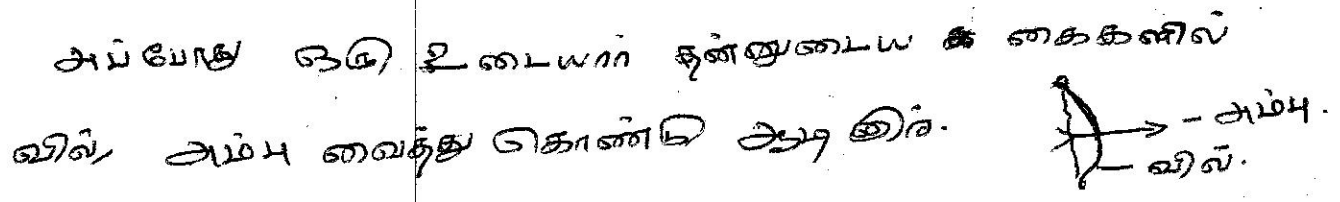 அப்போது ஒரு உடையார் தன்னுடைய கைகளில் - அம்பு.
வில், அம்பு வைத்து கொண்டு ஆடினார். - வில்.